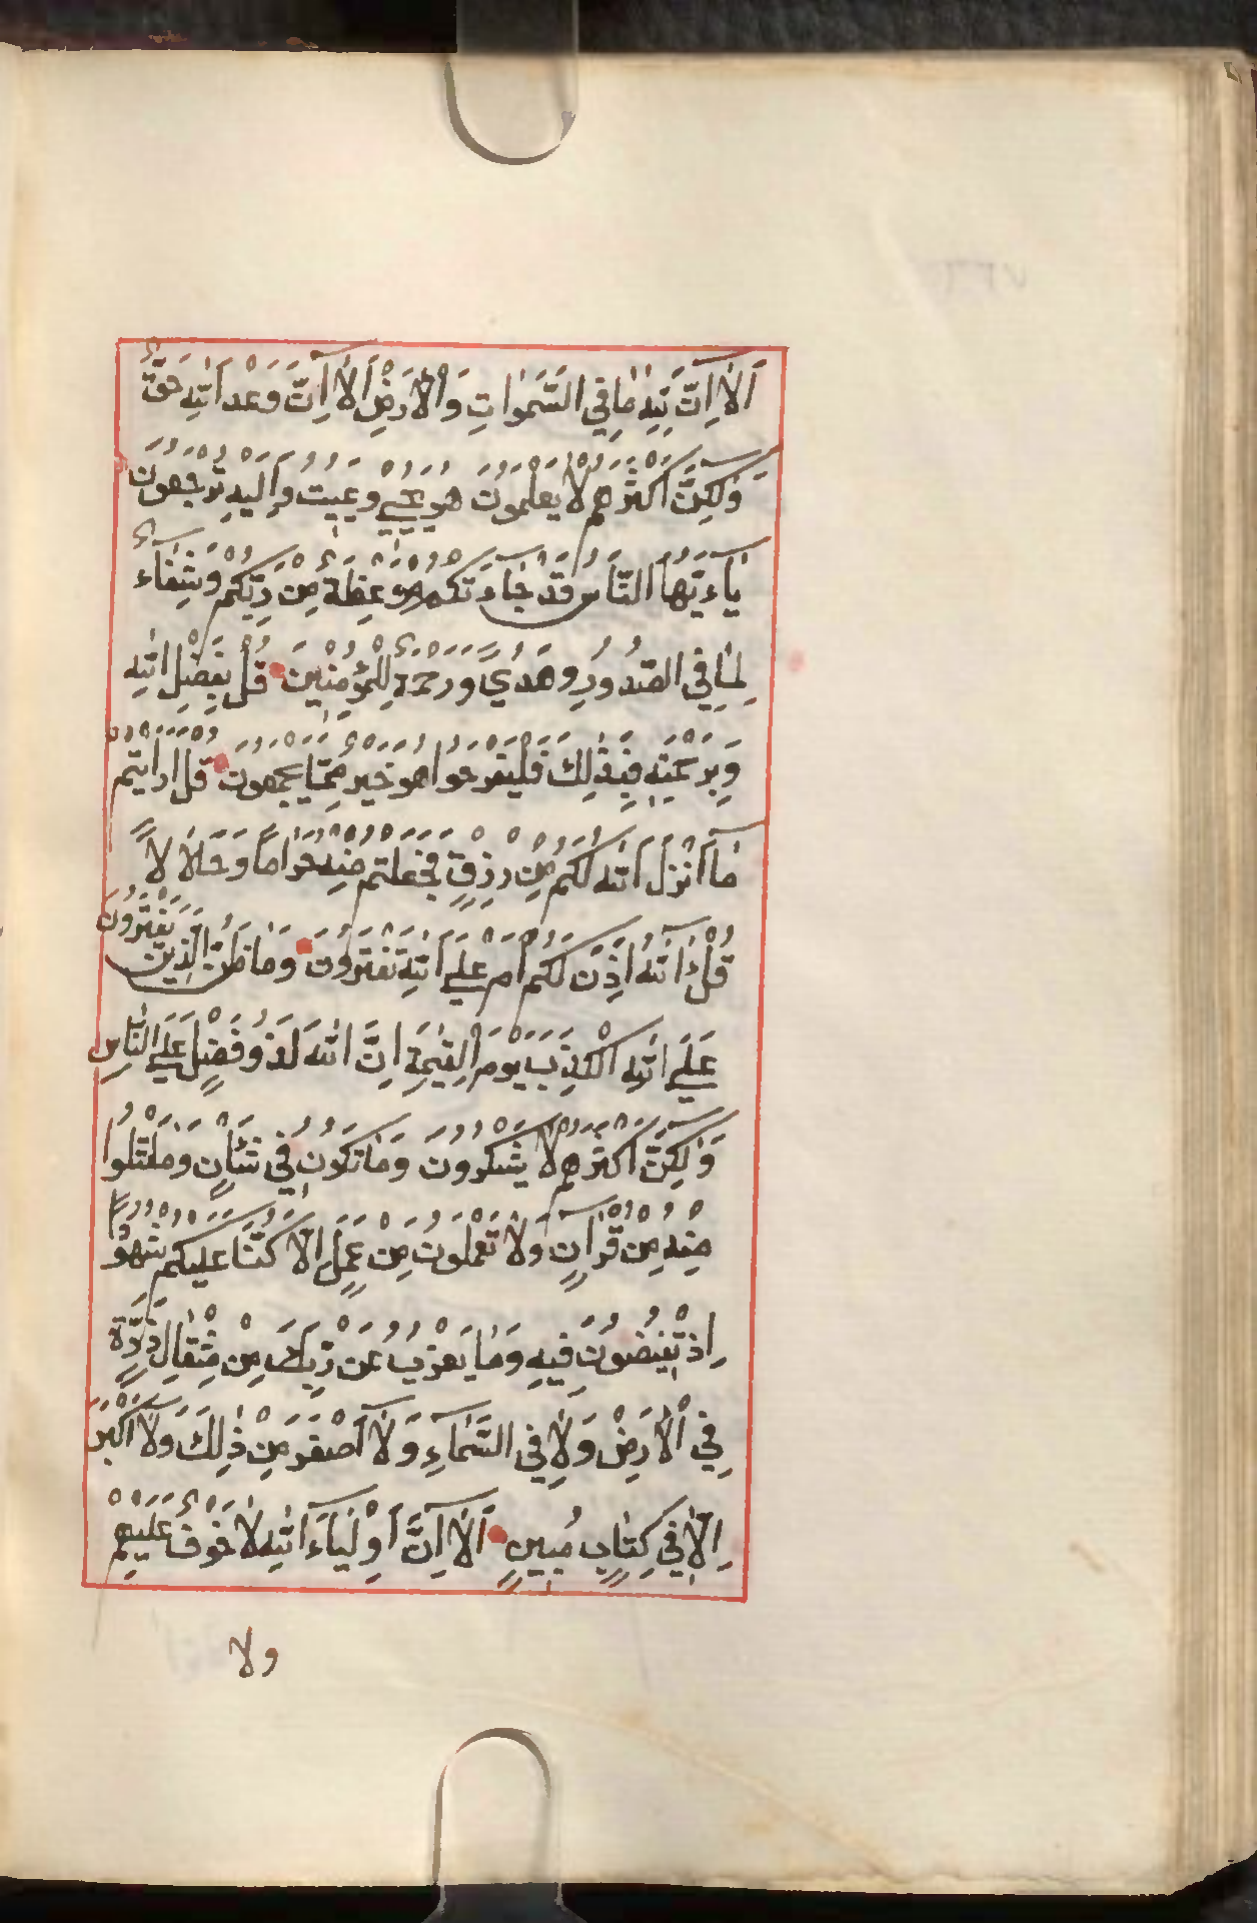 اَلَا اِنَّ لِلّٰهِ مَا فِي السَّمٰوَاتِ وَالْاَرْضِ اَلَا اِنَّ وَعْدَ اللّٰهِ حَقٌّ
وَلٰكِنَّ اَكْثَرَهُمْ لَا يَعْلَمُونَ هُوَ يُحْيِي وَيُمِيتُ وَاِلَيْهِ تُرْجَعُونَ
يَاءَيُّهَا النَّاسُ قَدْ جَاءَتْكُمْ مَوْعِظَةٌ مِنْ رَبِّكُمْ وَشِفَاءٌ
لِمَا فِي الصُّدُورِ وَهُدًى وَرَحْمَةٌ لِلْمُؤْمِنِينَ قُلْ بِفَضْلِ اللّٰهِ
وَبِرَحْمَتِهِ فَبِذٰلِكَ فَلْيَفْرَحُوا هُوَ خَيْرٌ مِمَّا يَجْمَعُونَ قُلْ اَرَاَيْتُمْ
مَا اَنْزَلَ اللّٰهُ لَكُمْ مِنْ رِزْقٍ فَجَعَلْتُمْ مِنْهُ حَرَاماً وَحَلَالاً
قُلْ ءٰاللّٰهُ اَذِنَ لَكُمْ اَمْ عَلَى اللّٰهِ تَفْتَرُونَ وَمَا ظَنُّ الَّذِينَ يَفْتَرُونَ
عَلَى اللّٰهِ الْكَذِبَ يَوْمَ الْقِيٰمَةِ اِنَّ اللّٰهَ لَذُو فَضْلٍ عَلَى النَّاسِ
وَلٰكِنَّ اَكْثَرَهُمْ لَا يَشْكُرُونَ وَمَا تَكُونُ فِي شَأْنٍ وَمَا تَتْلُوا
مِنْهُ مِنْ قُرْاٰنٍ وَلَا تَعْمَلُونَ مِنْ عَمَلٍ اِلَّا كُنَّا عَلَيْكُمْ شُهُوداً
اِذْ تُفِيضُونَ فِيهِ وَمَا يَعْزُبُ عَنْ رَبِّكَ مِنْ مِثْقَالِ ذَرَّةٍ
فِي الْاَرْضِ وَلَا فِي السَّمَاءِ وَلَا اَصْغَرَ مِنْ ذٰلِكَ وَلَا اَكْبَرَ
اِلَّا فِي كِتَابٍ مُبِينٍ اَلَا اِنَّ اَوْلِيَاءَ اللّٰهِ لَا خَوْفٌ عَلَيْهِمْ
ولا